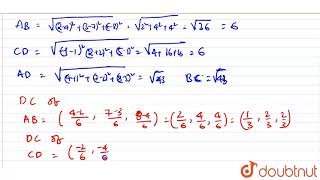 AB = √(2-4)²+(3-7)²+(4-8)² = √2²+4²+4² = √36 = 6
CD = √(-1-1)²+(2+2)²+(5-1)² = √4+16+16 = 6
AD = √(4+1)²+(7-2)²+(8-5)² = √43 BC = √43
DC of
AB = (4-2/6, 7-3/6, 8-4/6) = (2/6, 4/6, 4/6) = (1/3, 2/3, 2/3)
DC of
CD = (-2/6, -4/6
doubtnut